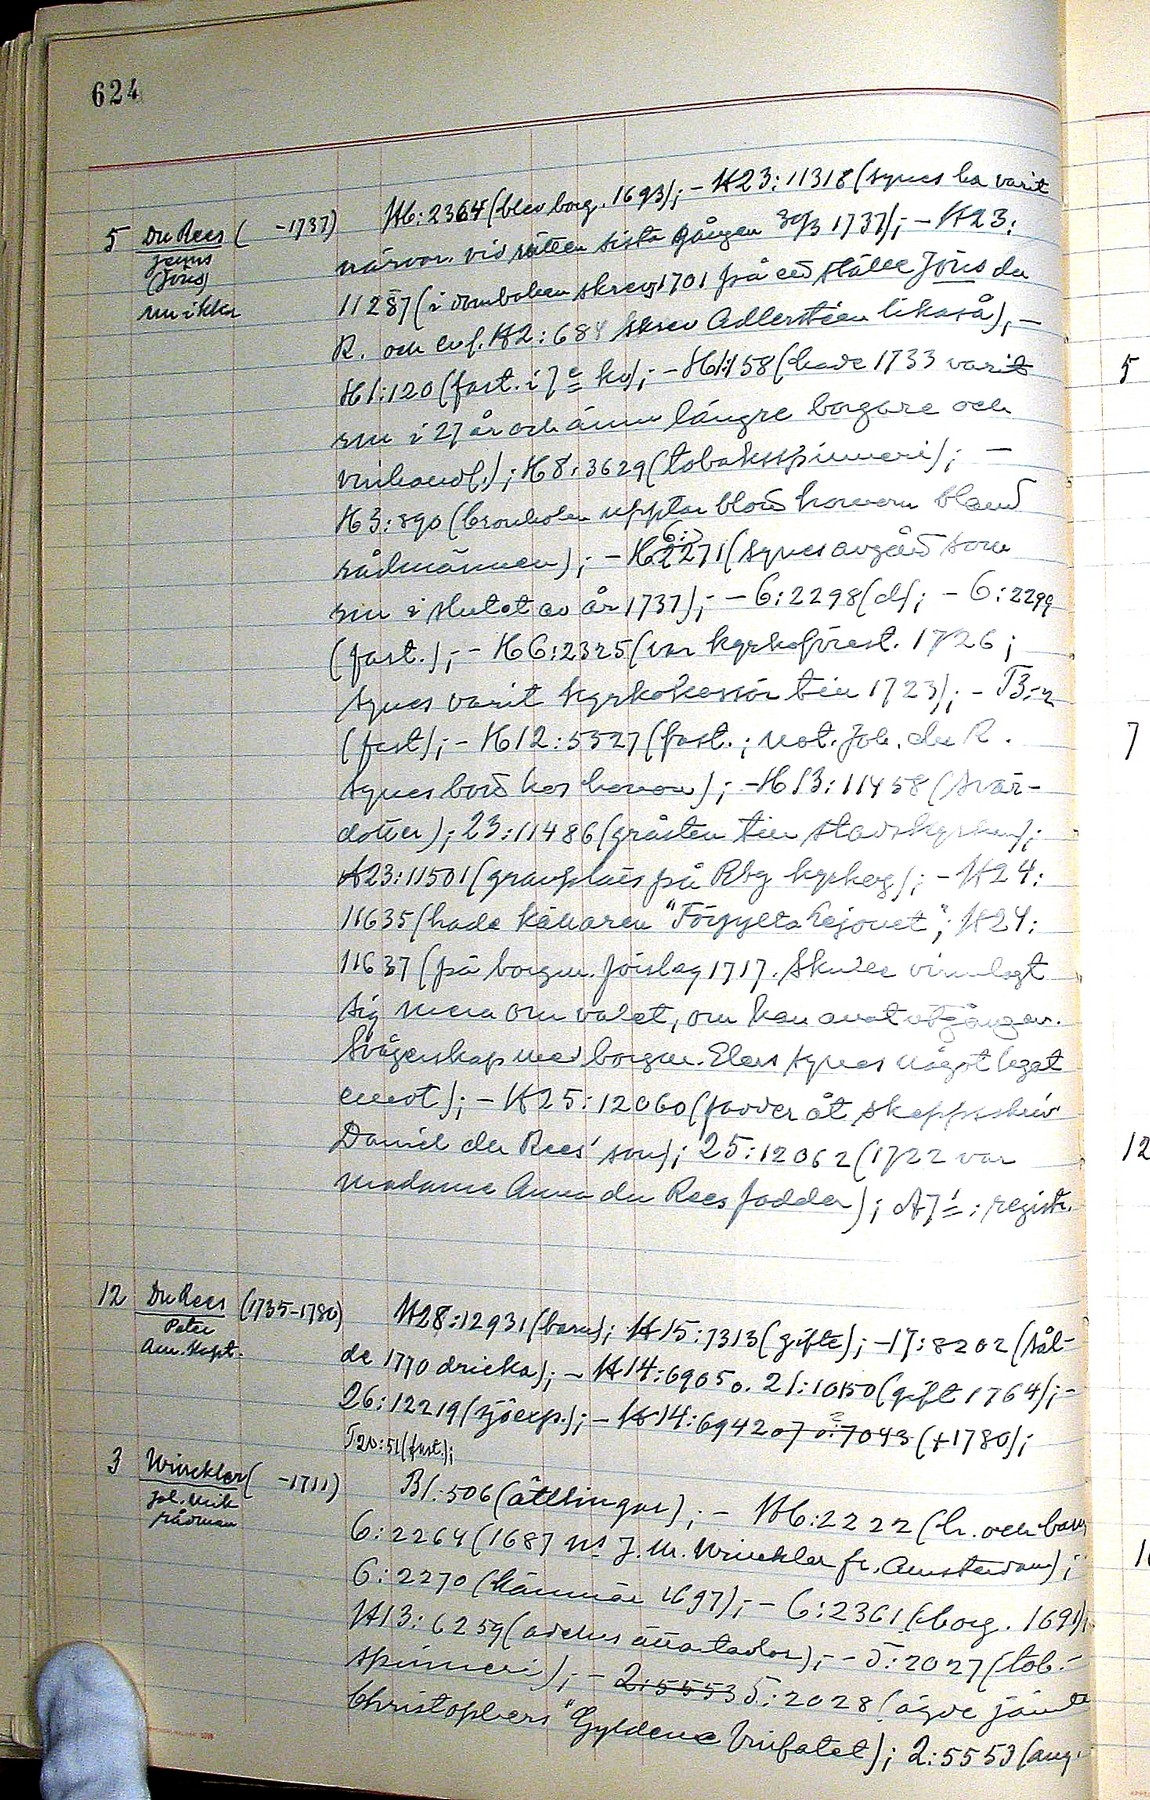 624
5 Du Rees ( -1737) H6:2364 (blev borg. 1693); - H23:11318 (synes ha varit
Jöns
(Jöris) närvar. vid rätten sista gången 30/3 1737); - H23:
11287 (i domboken skrevs 1701 på ett ställe Jöris du
R. och enl. H2:684 skrev Adlersteen likaså), -
H1:120 (fast. i 7e kv); - H1:158 (hade 1733 varit
rm i 27 år och ännu längre borgare och
vinhandl.); H8:3629 (tobaksspinneri); -
H3:890 (bromboken upptar blott honom bland
rådmännen); - H6:2271 (synes avgått som
rm i slutet av år 1737); - 6:2298 (d); - 6:2299
(fast.); - H6:2325 (var kyrkoförest. 1726;
synes varit kyrkokassör till 1723); - T3:2
(fast); - H12:5327 (fast.; not. Joh. du R.
synes bott hos honom); - H13:11458 (svär-
dotter); 23:11486 (gråsten till stadskyrkan);
H23:11501 (gravplats på Rbg kyrkog); - H24:
11635 (hade källaren "Förgyllta Lejonet"; H24:
11637 (på borgm. förslag 1717. Skulle vinnlagt
sig mera om valet, om han anat utgången.
Svågerskap med borgm. Elers synes något legat
emot); - H25:12060 (fadder åt skeppsskriv
Daniel du Rees' son); 25:12062 (1722 var
madame Anna du Rees fadder); A7:registr.
12 Du Rees (1735-1780) H28:12931 (barn); H15:7313 (gifte); - 17:8202 (sål-
Peter
Am. Kapt. de 1770 dricka); - H14:6905 o. 21:10150 (gift 1764); -
26:12219 (sjöexp.); - H14:6942 o. 7043 (+1780);
T20:51 (fast.);
3 Winckler ( -1711) B1:506 (ättlingar); - H6:2222 (h. och barn
Joh. Mik
rådman 6:2264 (1687 ns J. M. Winckler fr. Amsterdam);
6:2270 (kämnär 1697); - 6:2361 (borg. 1691);
H13:6259 (); - 5:2027 (tob.-
spinneri); - 2:5553 5:2028 (ägde jämte
Christophers "Gyldene Vinfatet); 2:5553 (ang.
5
7
12